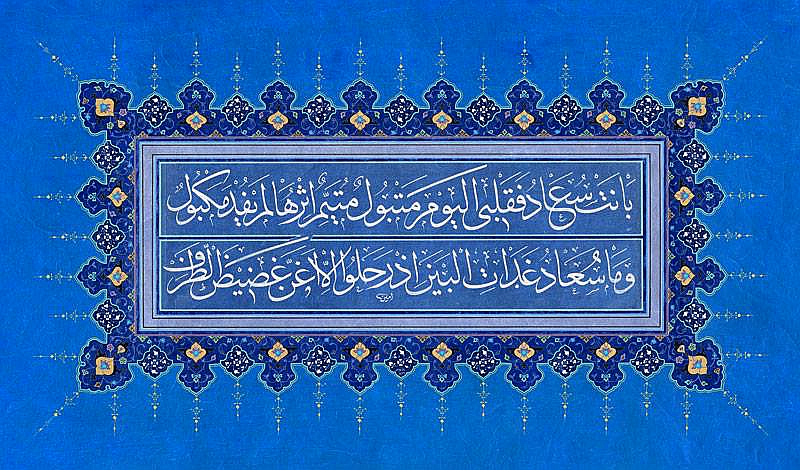 بَانَتْ سُعَادُ فَقَلْبِي الْيَوْمَ مَتْبُولُ مُتَيَّمٌ إِثْرَهَا لَمْ يُفْدَ مَكْبُولُ
وَمَا سُعَادُ غَدَاتَ الْبَيْنِ إِذْ رَحَلُوا إِلَّا أَغَنُّ غَضِيضُ الطَّرْفِ